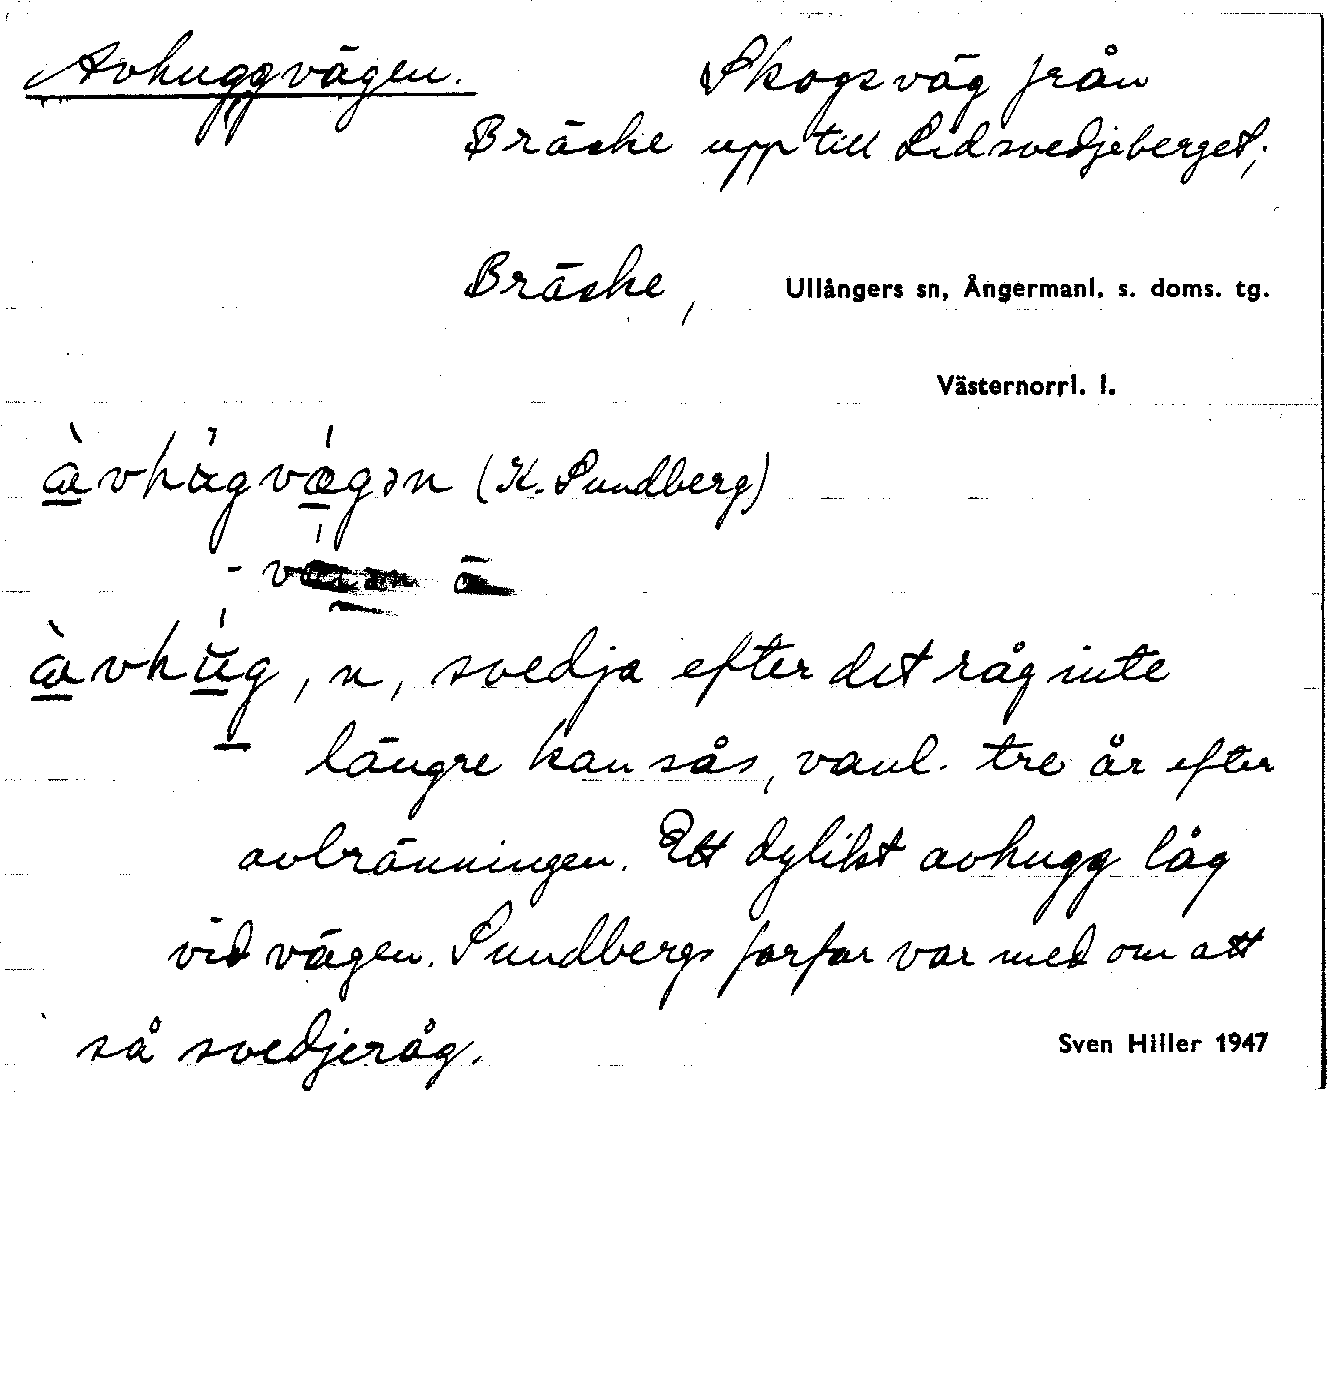 Avhuggvägen. Skogsväg från
Bräcke upp till Lidsvedjeberget;
Bräcke, Ullångers sn, Ångermanl. s. doms. tg.
Västernorrl. l.
àvhúgvǽgən (K. Sundberg)
àvhúg, n, svedja efter det råg inte
längre kan sås, vanl. tre år efter
avbränningen. Ett dylikt avhugg låg
vid vägen. Sundbergs farfar var med om att
så svedjeråg.
Sven Hiller 1947